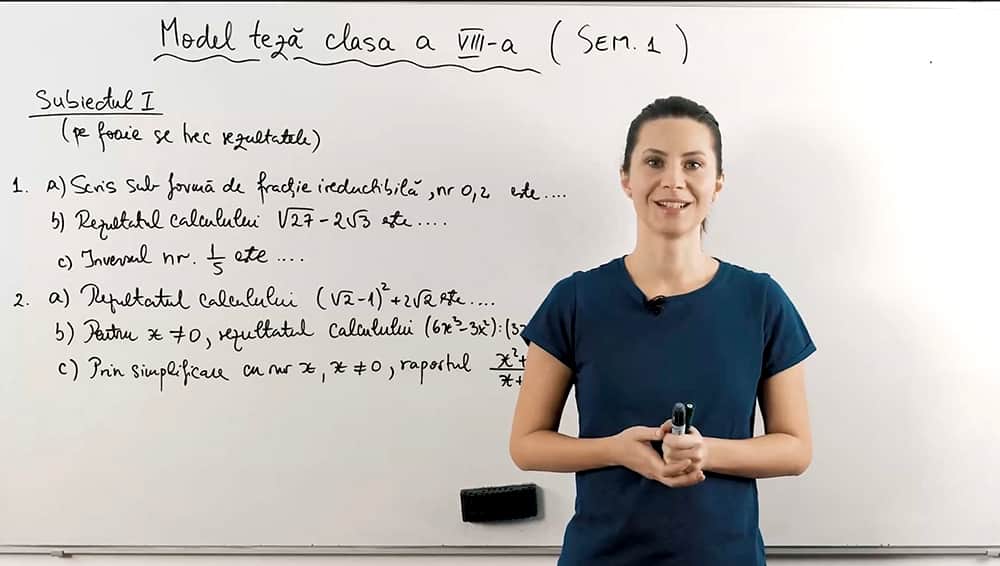 Model teză clasa a VIII-a (SEM. 1)
Subiectul I
(pe foaie se trec rezultatele)
1. a) Scris sub formă de fracție ireductibilă, nr 0,2 este ....
b) Rezultatul calculului √27 - 2√3 este ....
c) Inversul nr. 1/5 este ....
2. a) Rezultatul calculului (√2-1)² + 2√2 este ....
b) Pentru x ≠ 0, rezultatul calculului (6x³-3x²):(3
c) Prin simplificare cu nr x, x ≠ 0, raportul x²+/x+